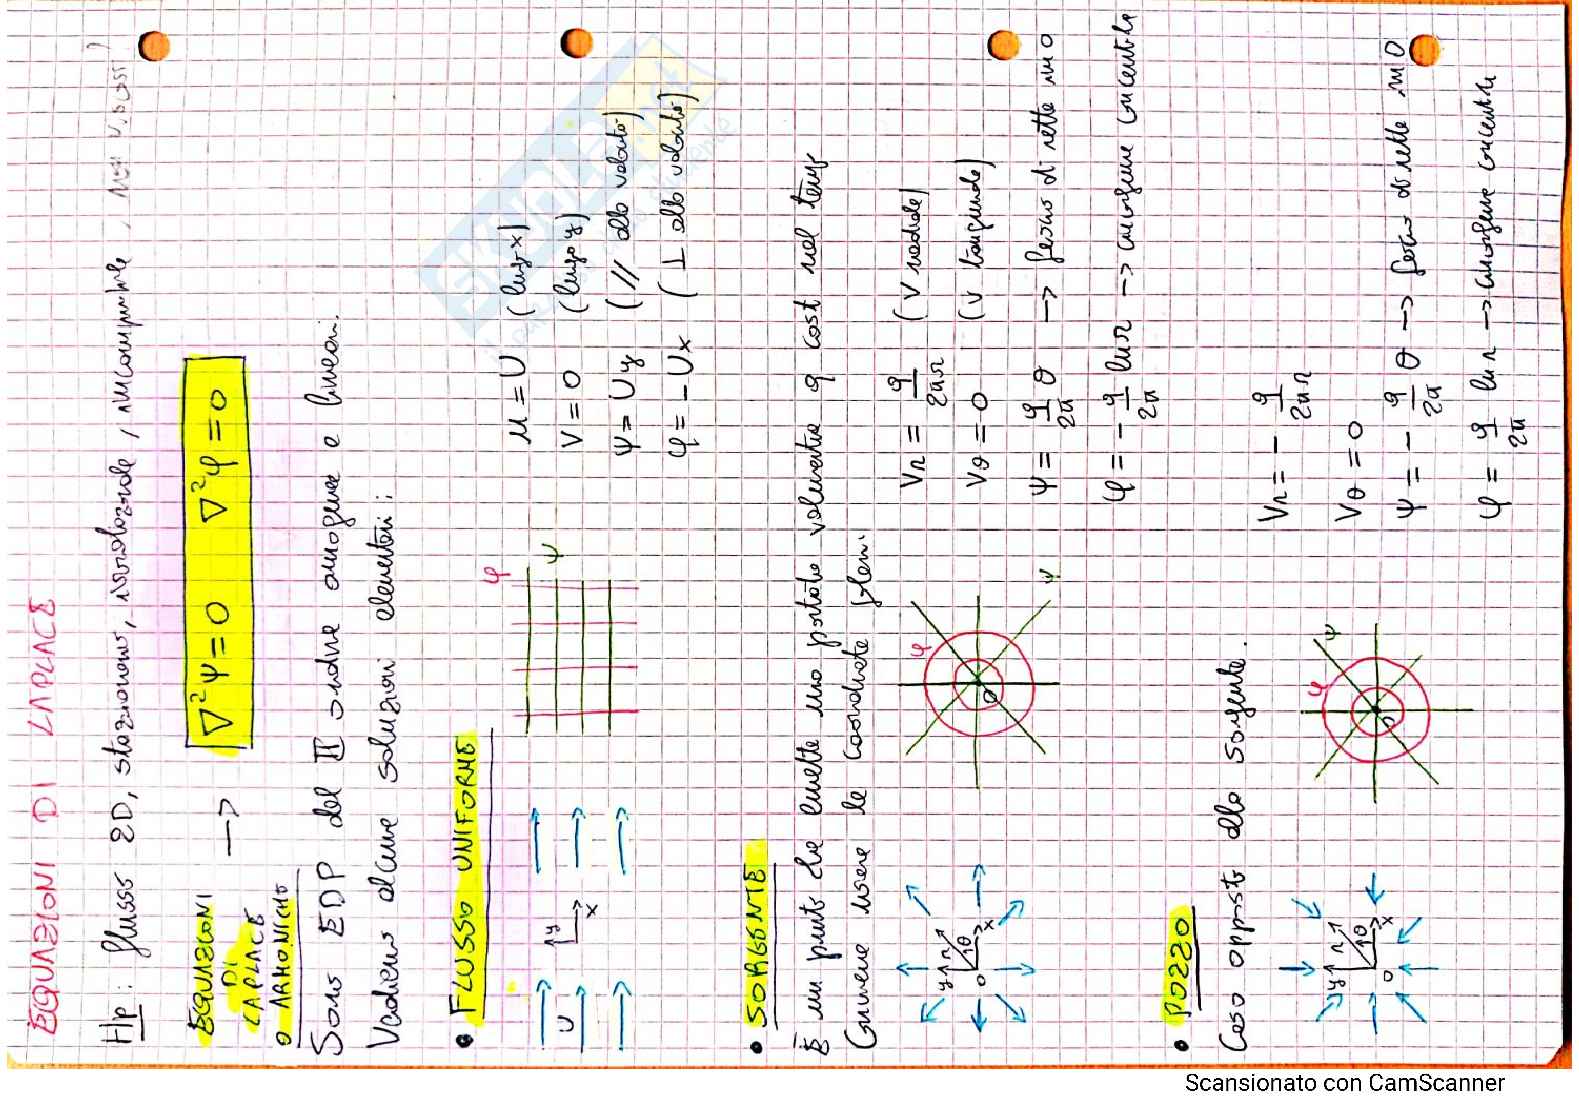 EQUAZIONI DI LAPLACE
Hp: flusso 2D, stazionario, irrotazionale, incomprimibile, non viscoso)
EQUAZIONI DI LAPLACE O ARMONICHE → ∇²ψ = 0 ∇²φ = 0
Sono EDP del II ordine omogenee e lineari.
Vediamo alcune soluzioni elementari:
• FLUSSO UNIFORME
U
y
x
φ
ψ
u = U (lungo x)
v = 0 (lungo y)
ψ = Uy (// alla velocità)
φ = -Ux (⊥ alla velocità)
• SORGENTE
È un punto che emette una portata volumetrica q cost nel tempo
Conviene usare le coordinate polari.
y r θ x O
φ
ψ
O
Vr = q/2πr (v radiale)
Vθ = 0 (v tangenziale)
ψ = q/2π θ → fascio di rette in O
φ = - q/2π ln r → circonferenze concentriche
• POZZO
Caso opposto alla sorgente.
y r θ x O
φ
ψ
O
Vr = - q/2πr
Vθ = 0
ψ = - q/2π θ → fascio di rette in O
φ = q/2π ln r → circonferenze concentriche
SKUOLA.net
Scansionato con CamScanner